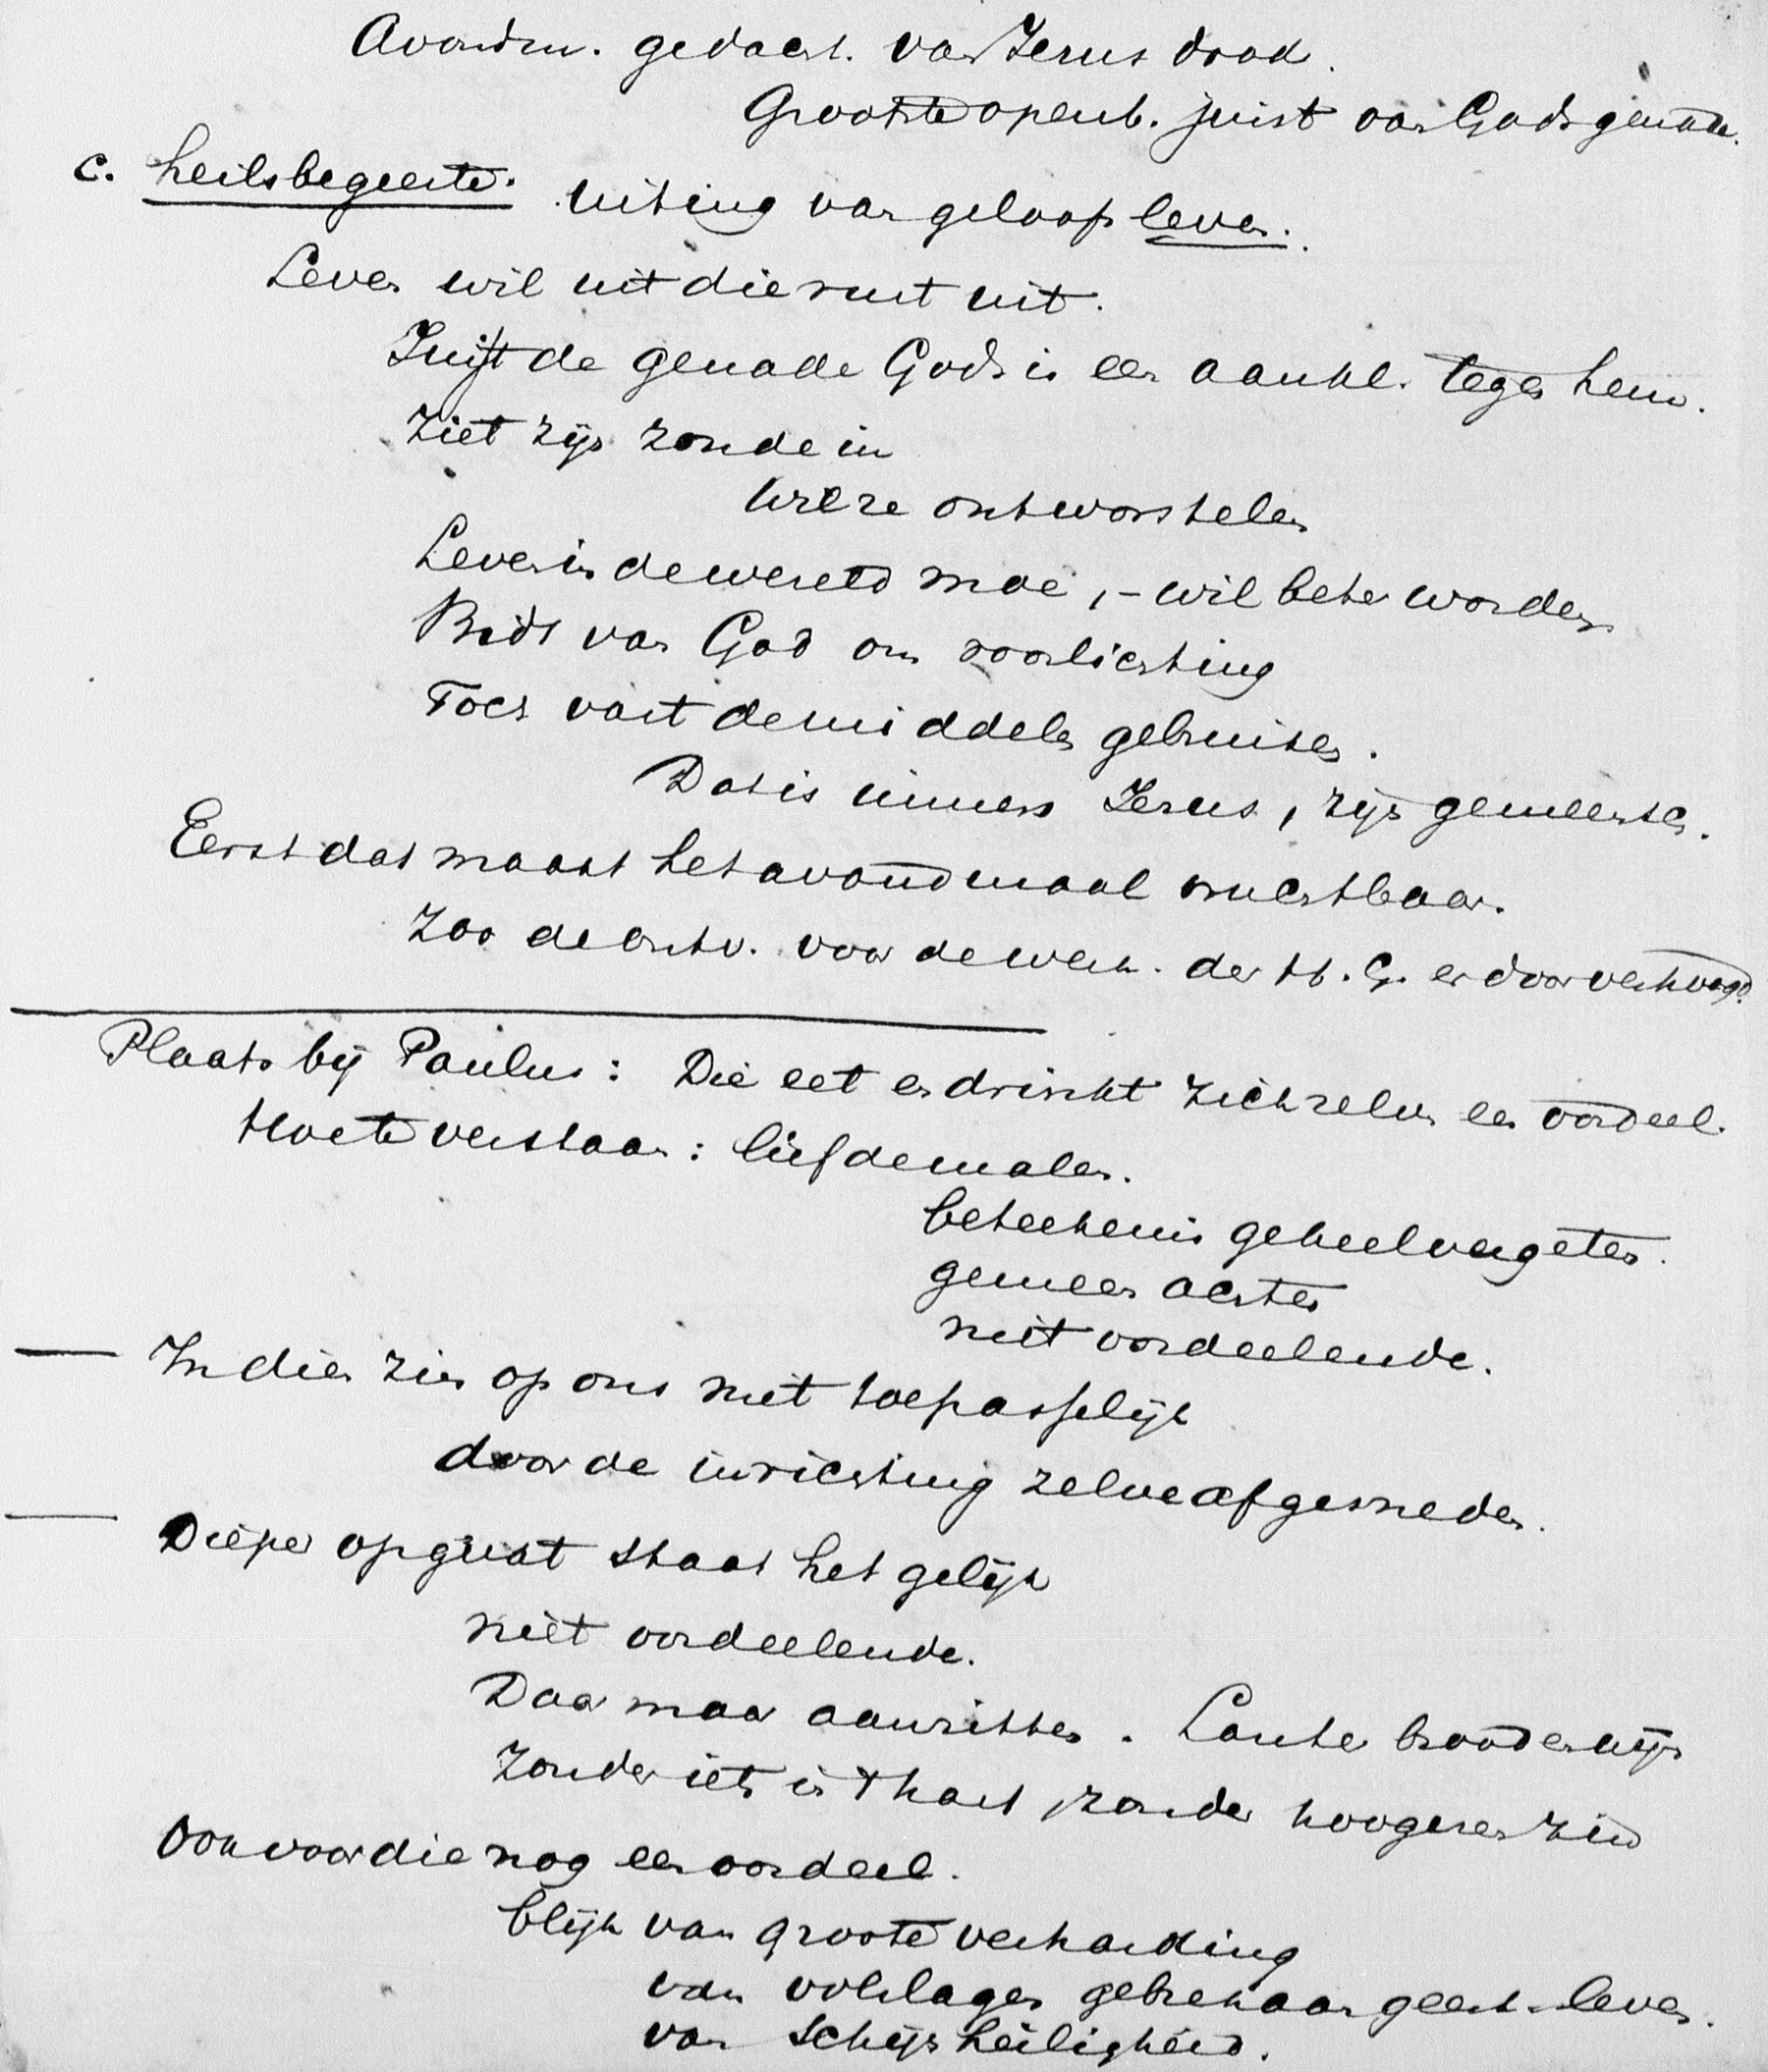 Avondm. gedacht. van Jezus dood.
Grootste openb. juist van Gods genade.
c. heilsbegeerte. Uiting van geloofsleven.
Leven wil uit die rust uit.
Juist de genade Gods is een aankl. tegen hem.
Ziet zijn zonde in
Wil ze ontworstelen
Leven is de wereld moe, – wil beter worden
Bidt van God om voorlichting
Toch vast de middelen gebruiken.
Dat is immers Jezus, zijn gemeensch.
Eerst dat maakt het avondmaal vruchtbaar.
Zoo de ontv. voor de werk. der H. G. er door verhoogd.
Plaats bij Paulus: Die eet en drinkt zichzelven een oordeel.
Hoe te verstaan: liefdemalen.
beteekenis geheel vergeten.
gemeen achten
niet oordeelende.
— In dien zin op ons niet toepasselijk
door de inrichting zelve afgesneden.
— Dieper opgevat staat het gelijk
niet oordeelende.
Daar maar aanzitten. Louter brood en wijn
Zonder iets in 't hart, zonder hoogeren zin
Ook voor die nog een oordeel.
blijk van groote verharding
van volslagen gebrek aan geest. leven.
van schijnheiligheid.